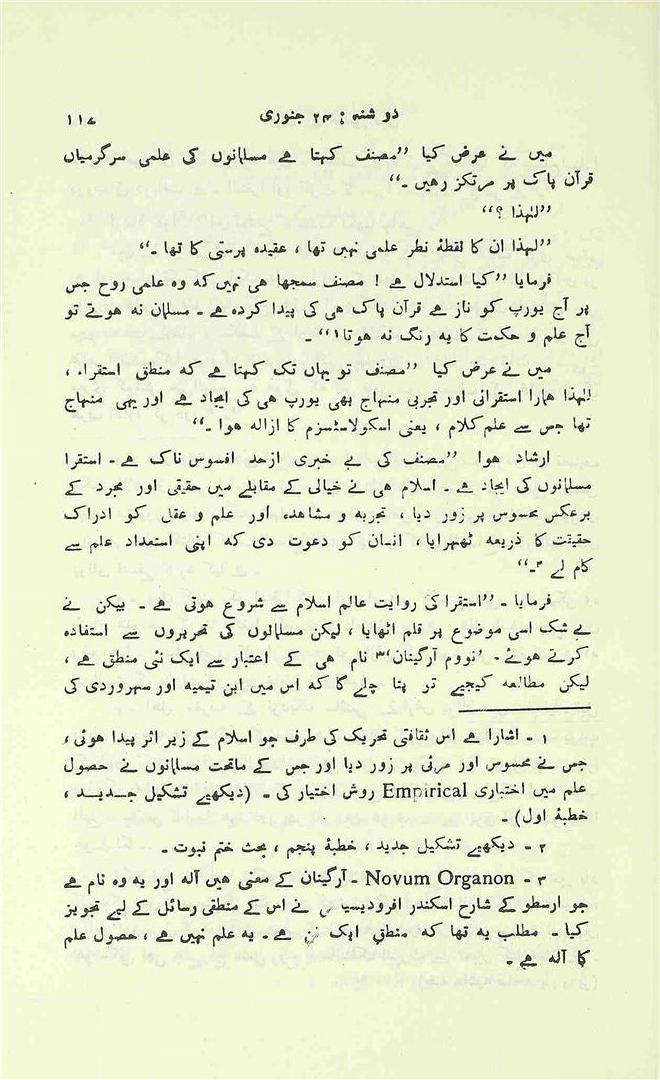 دو شنبہ : ۲۴ جنوری ۱۱۷
میں نے عرض کیا ’’مصنف کہتا ہے مسلمانوں کی علمی سرگرمیاں
قرآن پاک پر مرتکز رھیں ۔‘‘
’’لہٰذا ؟‘‘
’’لہٰذا ان کا نقطۂ نظر علمی نہیں تھا ، عقیدہ پرستی کا تھا ۔‘‘
فرمایا ’’کیا استدلال ہے ! مصنف سمجھا ھی نہیں کہ وہ علمی روح جس
پر آج یورپ کو ناز ہے قرآن پاک ھی کی پیدا کردہ ہے ۔ مسلمان نہ ھوتے تو
آج علم و حکمت کا یہ رنگ نہ ھوتا۱‘‘ ۔
میں نے عرض کیا ’’مصنف تو یہاں تک کہتا ہے کہ منطق استقراء ،
لہٰذا ھمارا استقرائی اور تجربی منہاج بھی یورپ ھی کی ایجاد ہے اور یہی منہاج
تھا جس سے علم کلام ، یعنی اسکولاسٹسزم کا ازالہ ھوا ۔‘‘
ارشاد ھوا ’’مصنف کی بے خبری ازحد افسوس ناک ہے ۔ استقرا
مسلمانوں کی ایجاد ہے ۔ اسلام ھی نے خیالی کے مقابلے میں حقیقی اور مجرد کے
برعکس محسوس پر زور دیا ، تجربہ و مشاھدہ اور علم و عقل کو ادراک
حقیقت کا ذریعہ ٹھہرایا ، انسان کو دعوت دی کہ اپنی استعداد علم سے
کام لے ۲۔‘‘
فرمایا ۔ ’’استقرا کی روایت عالم اسلام سے شروع ھوتی ہے ۔ بیکن نے
بے شک اسی موضوع پر قلم اٹھایا ، لیکن مسلمانوں کی تحریروں سے استفادہ
کرتے ھوئے ۔ ’نووم آرگینان‘۳ نام ھی کے اعتبار سے ایک نئی منطق ہے ،
لیکن مطالعہ کیجیے تو پتا چلے گا کہ اس میں ابن تیمیہ اور سہروردی کی
۱ ۔ اشارا ہے اس ثقافتی تحریک کی طرف جو اسلام کے زیر اثر پیدا ھوئی ،
جس نے محسوس اور مرئی پر زور دیا اور جس کے ماتحت مسلمانوں نے حصول
علم میں اختباری Empirical روش اختیار کی ۔ (دیکھیے تشکیل جدید ،
خطبۂ اول) ۔
۲ ۔ دیکھیے تشکیل جدید ، خطبۂ پنجم ، بحث ختم نبوت ۔
۳ ۔ Novum Organon ۔ آرگینان کے معنی ھیں آلہ اور یہ وہ نام ہے
جو ارسطو کے شارح اسکندر افرودیسیا نے اس کے منطقی رسائل کے لیے تجویز
کیا ۔ مطلب یہ تھا کہ منطق ایک فن ہے ۔ یہ علم نہیں ہے ، حصول علم
کا آلہ ہے ۔